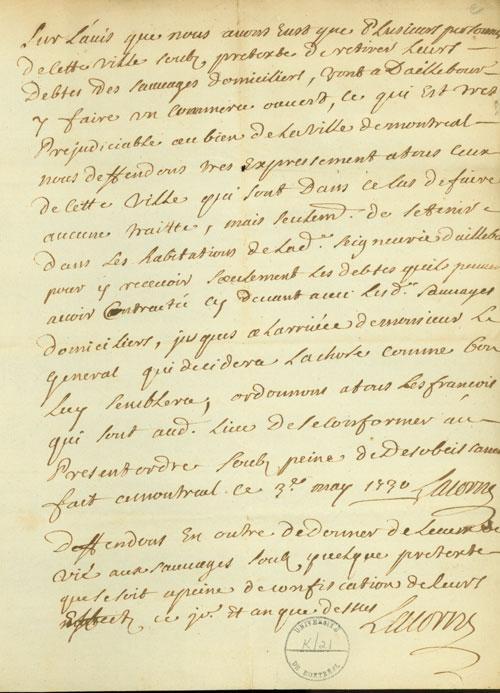 Sur l'avis que nous avons Eust que Plusieurs personnes
de cette ville soubz pretexte de retirer leurs
Debtes des sauvages domiciliers, vont a Daillebour
y faire un Commerce ouvert, ce qui Est tres
Prejudiciable au bien de la ville de montreal
nous deffendons tres Expressement a tous ceux
de cette ville qui sont Dans ce Cas de faire
aucune traitte, mais seulemt. de se tenir
dans les habitations de lad.e seigneurie dailleb
pour y recevoir seulement les debtes quils peuvent
avoir Contractée cy devant avec lesd.s sauvages
domiciliers, jusques a larrivée de monsieur Le
General qui decidera la chose comme bon
Luy semblera; ordonnons a tous les francois
qui sont aud. Lieu de se conformer au
Present ordre soubz peine de Desobeissance
fait a montreal ce 3.e may 1730 Lacorne
Deffendons En outre de donner de Leau de
vie aux sauvages soubz quelque pretexte
que se soit a peine de confiscation de leurs
ce jo.r Et an que dessus
Lacorne
UNIVERSITÉ
K/21
DE MONTRÉAL